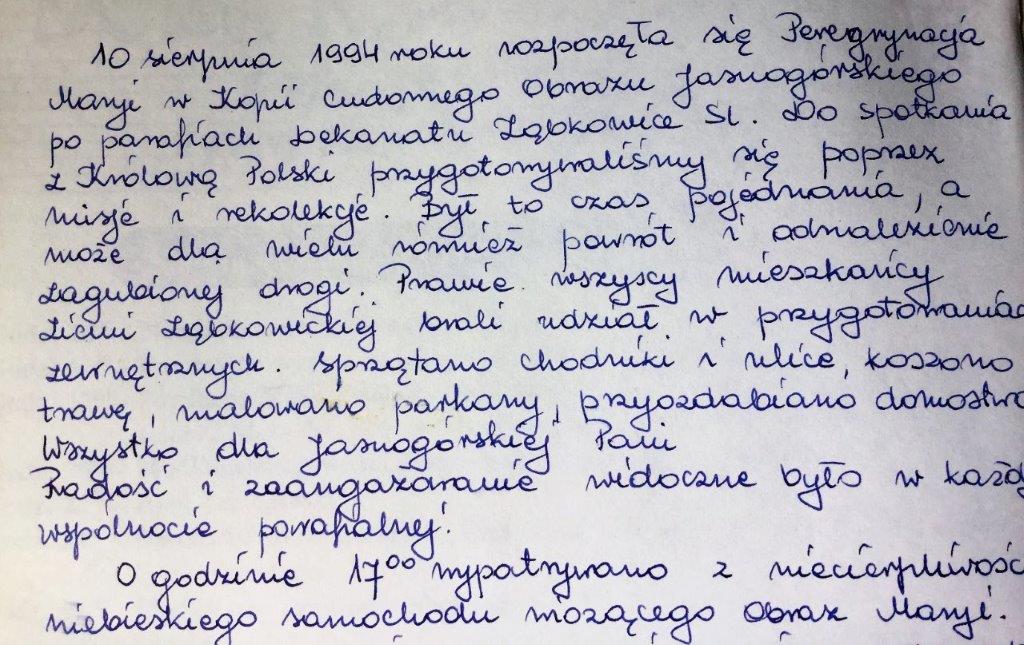 10 sierpnia 1994 roku rozpoczęła się Peregrynacja
Maryi w Kopii cudownego Obrazu Jasnogórskiego
po parafiach Dekanatu Ząbkowice Śl. Do spotkania
z Królową Polski przygotowywaliśmy się poprzez
misje i rekolekcje. Był to czas pojednania, a
może dla wielu również powrót i odnalezienie
zagubionej drogi. Prawie wszyscy mieszkańcy
Ziemi Ząbkowickiej brali udział w przygotowaniac
zewnętrznych. Sprzątano chodniki i ulice, koszono
trawę, malowano parkany, przyozdabiano domostwa
Wszystko dla Jasnogórskiej Pani
Radość i zaangażowanie widoczne było w każdy
wspólnocie parafialnej.
O godzinie 17⁰⁰ wypatrywano z niecierpliwośc
niebieskiego samochodu wiozącego Obraz Maryi.